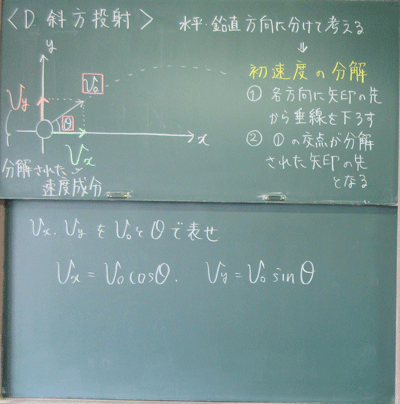 〈D 斜方投射〉
水平・鉛直方向に分けて考える
⇓
初速度の分解
① 各方向に矢印の先
から垂線を下ろす
② ①の交点が分解
された矢印の先
となる
y
Vy
V₀
θ
Vx
x
分解された
速度成分
Vx. VyをV₀とθで表せ
Vx = V₀cosθ. Vy = V₀sinθ